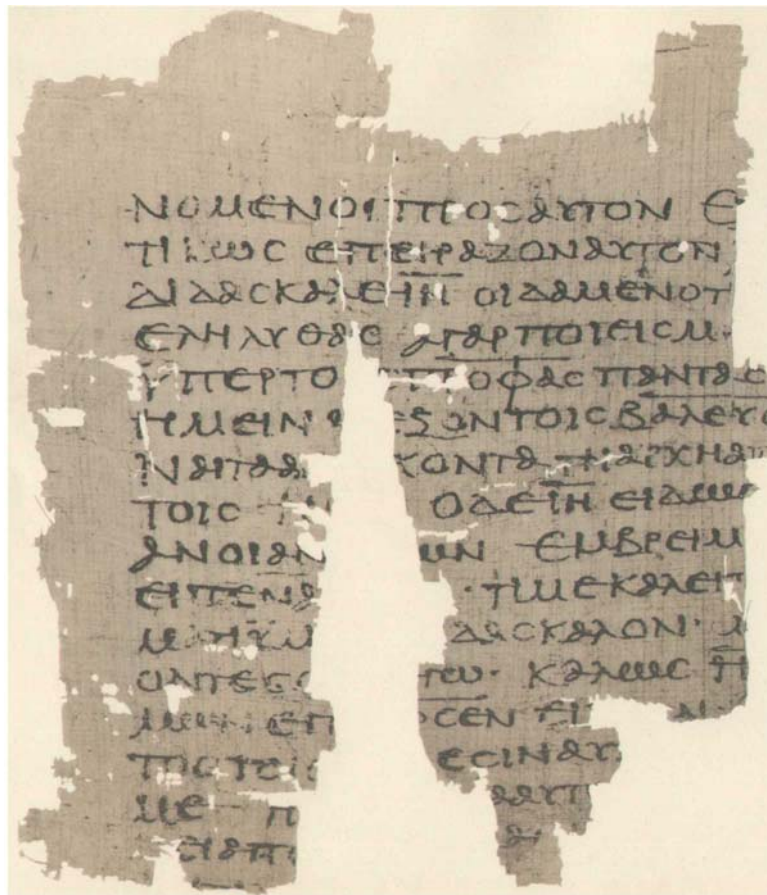 ΝΟΜΕΝΟΙ ΠΡΟC ΑΥΤΟΝ Ε
ΤΙΚΩC ΕΠΕΙΡΑΖΟΝ ΑΥΤΟΝ
ΔΙΔΑCΚΑΛΕ ΙΗ ΟΙΔΑΜΕΝ ΟΤ
ΕΛΗΛΥΘΑC Α ΓΑΡ ΠΟΙΕΙC Μ
ΥΠΕΡ ΤΟ ΠΡΟΦΑC ΠΑΝΤΑC
ΗΜΕΙΝ ΕΞΟΝ ΤΟΙC ΒΑΛΕΥC
ΝΑΙ ΤΑ ΚΟΝΤΑ ΤΗ ΑΡΧΗ Α
ΤΟΙC Η Ο ΔΕ ΙΗ ΕΙΔΩC
ΑΝΟΙΑΝ ΩΝ ΕΜΒΡΕΙΜ
ΕΙΠΕΝ Α · ΤΙ ΜΕ ΚΑΛΕΙΤ
ΜΑΤΙ ΥΜ ΔΑCΚΑΛΟΝ· Μ
ΕΓΩ· ΚΑΛΩC Η
ΜΩΝ ΕΠ ΦCΕΝ ΕΙ
ΤΟC ΤΟΙC ΕCΙΝ ΑΥ
ΜΕ Η Α ΑΥΤ